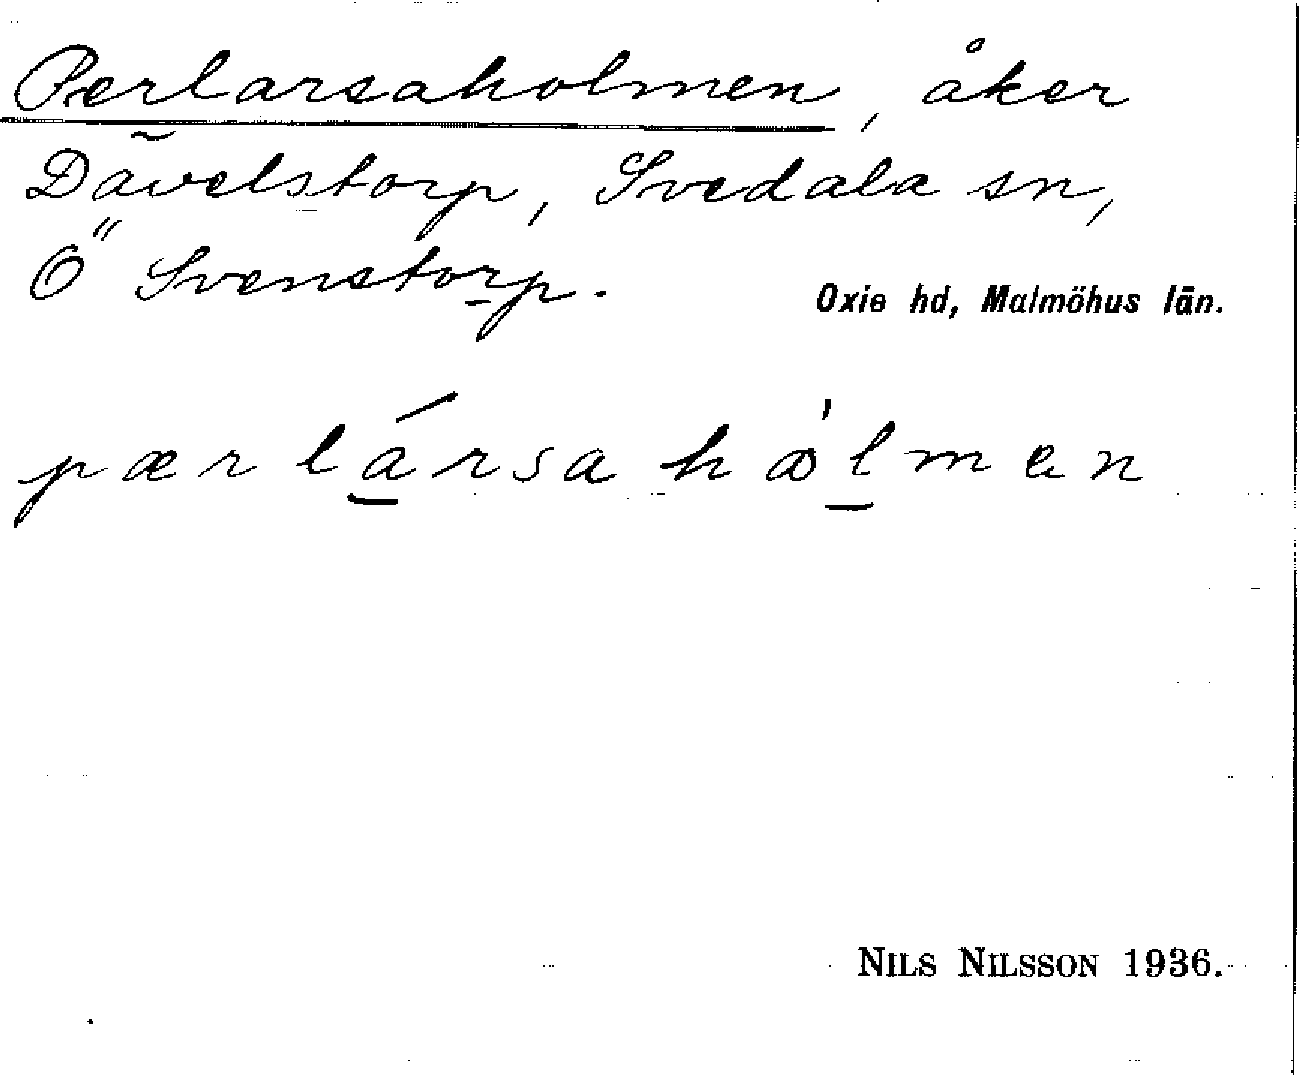 Perlarsaholmen, åker
Dävelstorp, Svedala sn,
Ö Svenstorp.
Oxie hd, Malmöhus län.
pærlársahólmen
NILS NILSSON 1936.